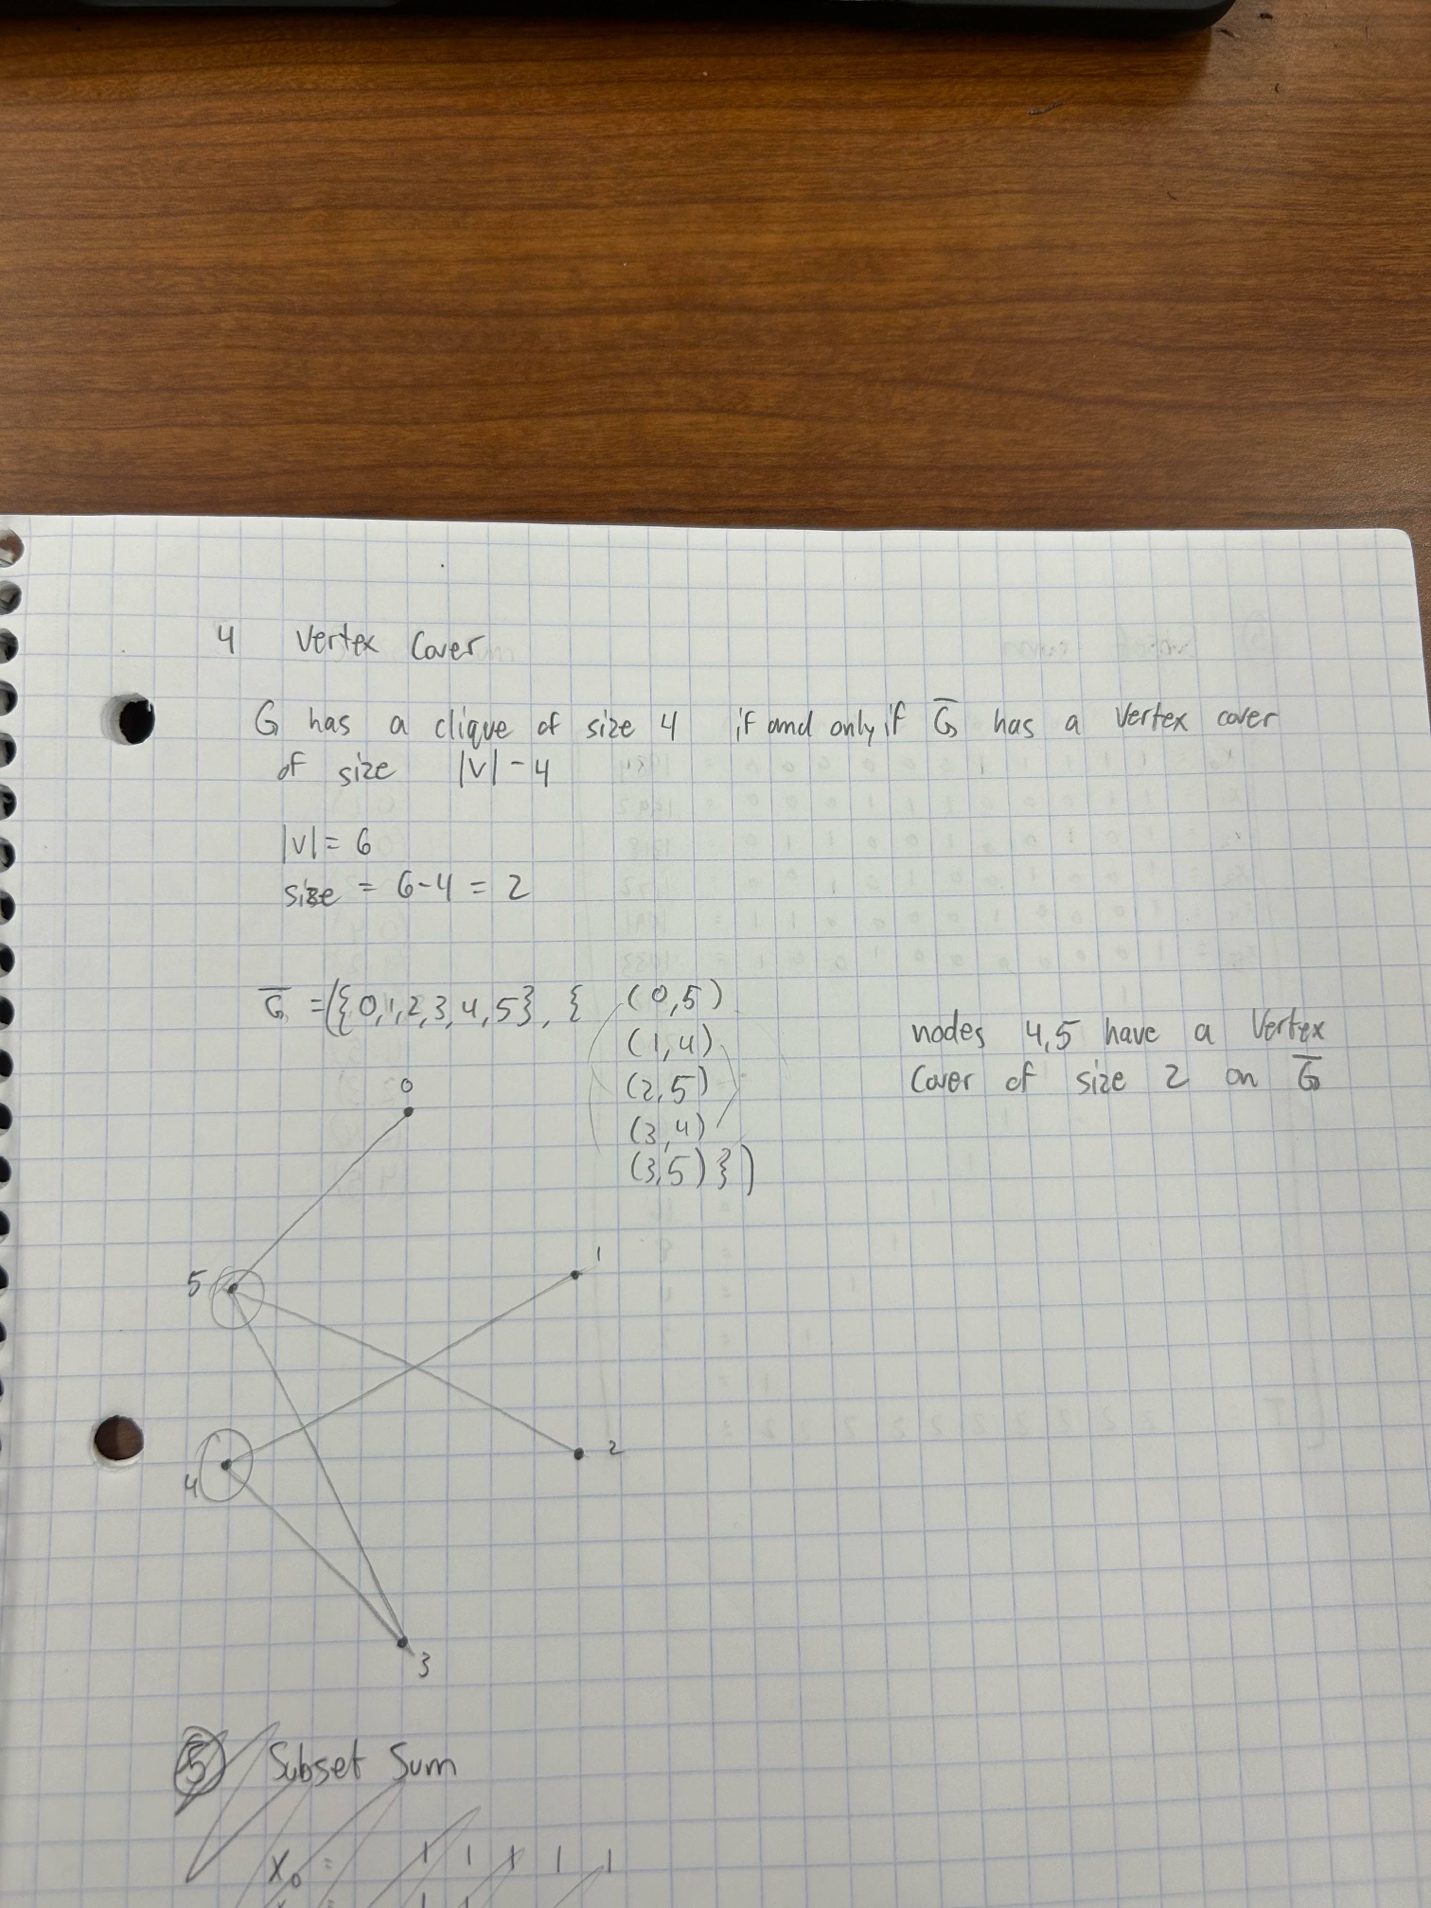 4 Vertex Cover
G has a clique of size 4 if and only if G̅ has a vertex cover
of size |V| - 4
|V| = 6
size = 6-4 = 2
G̅ = ({0,1,2,3,4,5}, { (0,5)
(1,4)
(2,5)
(3,4)
(3,5) })
nodes 4,5 have a Vertex
Cover of size 2 on G̅
0
5
1
4
2
3
5 Subset Sum
X₀ = 1 1 1 1 1